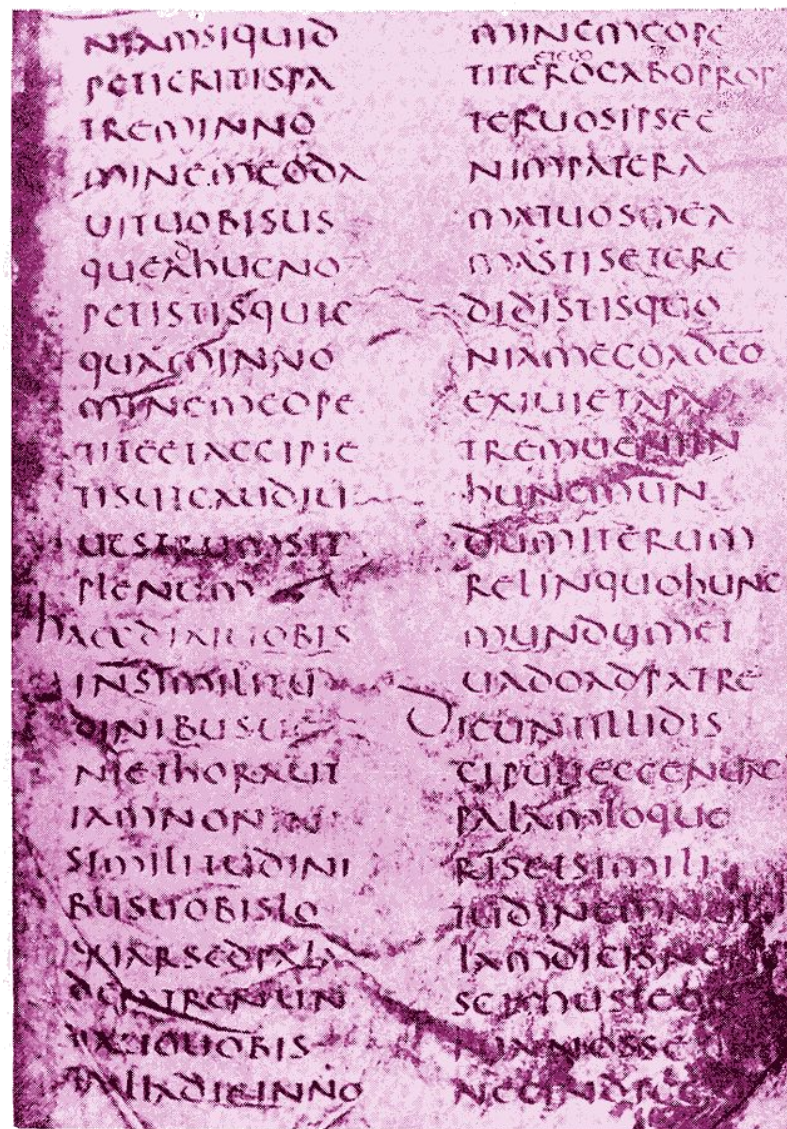 NIAMSIQUID
PETIERITISPA
TREMINNO
MINEMEODA
UITUOBISUS
QUEADHUCNO
PETISTISQUIC
QUAMINNO
MINEMEOPE
TITEETACCIPIE
TISUTGAUDIU
UESTRUMSIT
PLENUM
HAECDIXIUOBIS
INSIMILITU
DINIBUSUE
NIETHORAUT
IAMNONIN
SIMILITUDINI
BUSUOBISLO
SEDPALA
UOBIS
DIEINNO
MINEMEOPE
ETEGO
TITEROGABOPROP
TERUOSIPSEE
NIMPATERA
MATUOSMEA
MASTISETCRE
DIDISTISQUO
NIAMEGOADEO
EXIUIETAPA
TREMUENIIN
HUNCMUN
DUMITERUM
RELINQUOHUNC
MUNDUMET
UADOADPATRE
DICUNTILLIDIS
CIPULIECCENUNC
PALAMLOQUE
RISETSIMILI
TUDINEMNUL
LAMDICISNC
NOSSE